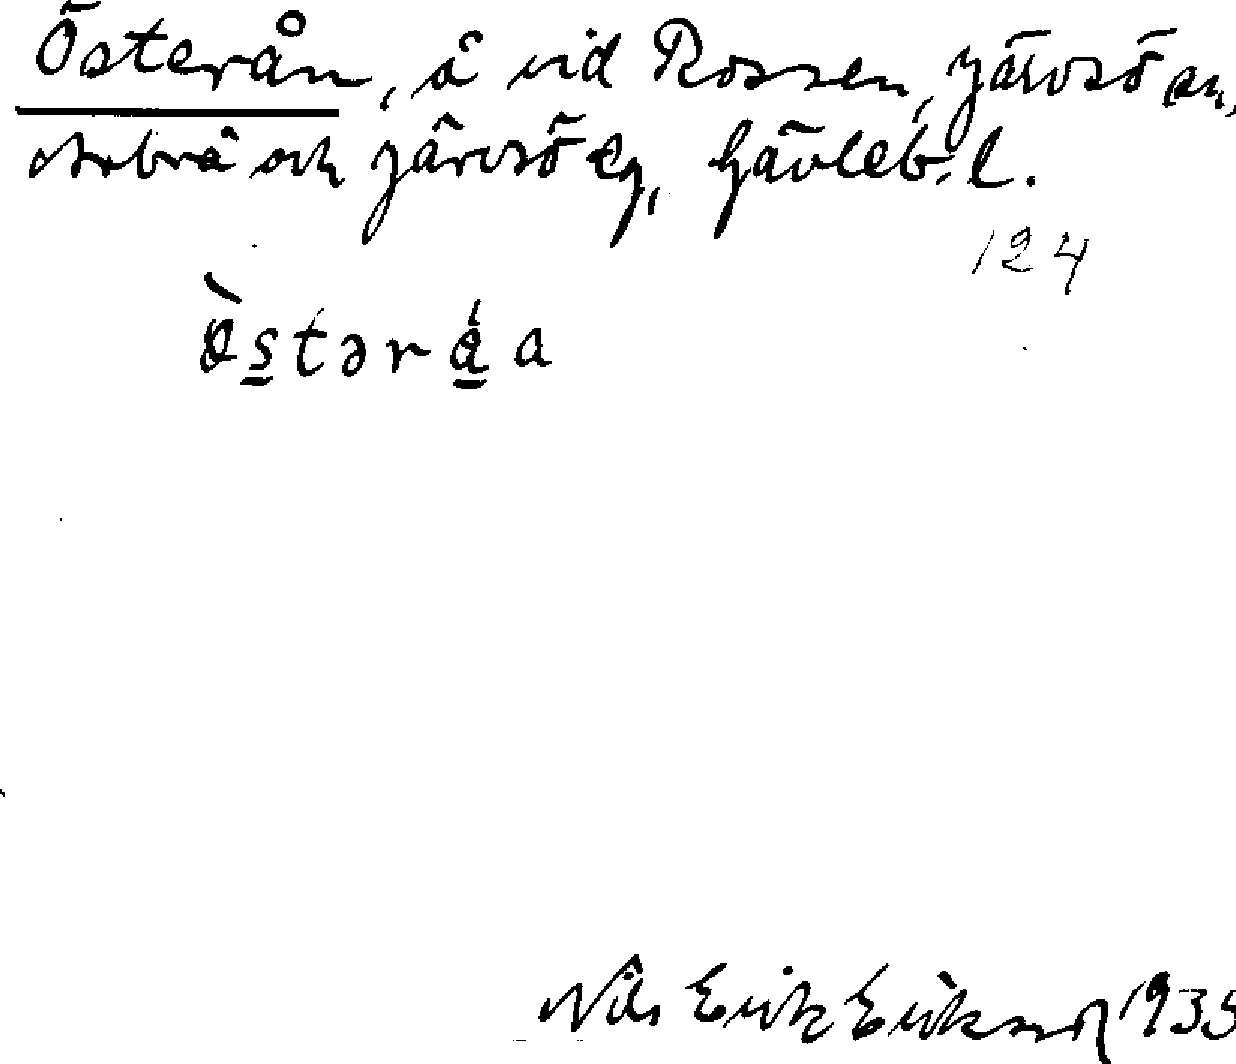 Österån, å vid Rossen, Järvsö sn,
Arbrå och Järvsö tg, Gävleb. l.
124
ö̀stərǻa
Nils Erik Eriksson 1935